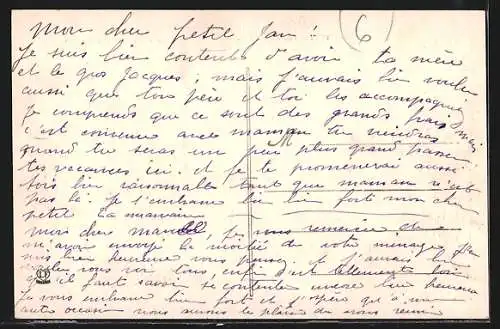 mon cher petit Jan !
6
Je suis bien contente d'avoir ta mère
et le gros Jacques, mais j'aurais bien voulu
aussi que ton père et toi les accompagnez
Je comprends que ce sont des grands frais, mais
c'est convenu avec maman tu viendras
quand tu seras un peu plus grand passer
tes vacances ici. et je te promènerai aussi
sois bien raisonnable tant que maman n'est
pas là. je t'embrasse bien bien fort mon cher
petit ta marraine
mon cher, je vous remercie de
m'avoir envoyé la moitié de votre ménage, je
suis bien heureuse vous pensez et j'aurais bien
voulu vous voir tous, enfin c'est tellement loin
qu'il faut savoir se contenter encore bien heureuse
Je vous embrasse bien fort et j'espère qu'à une
autre occasion nous aurons le plaisir de vous revoir